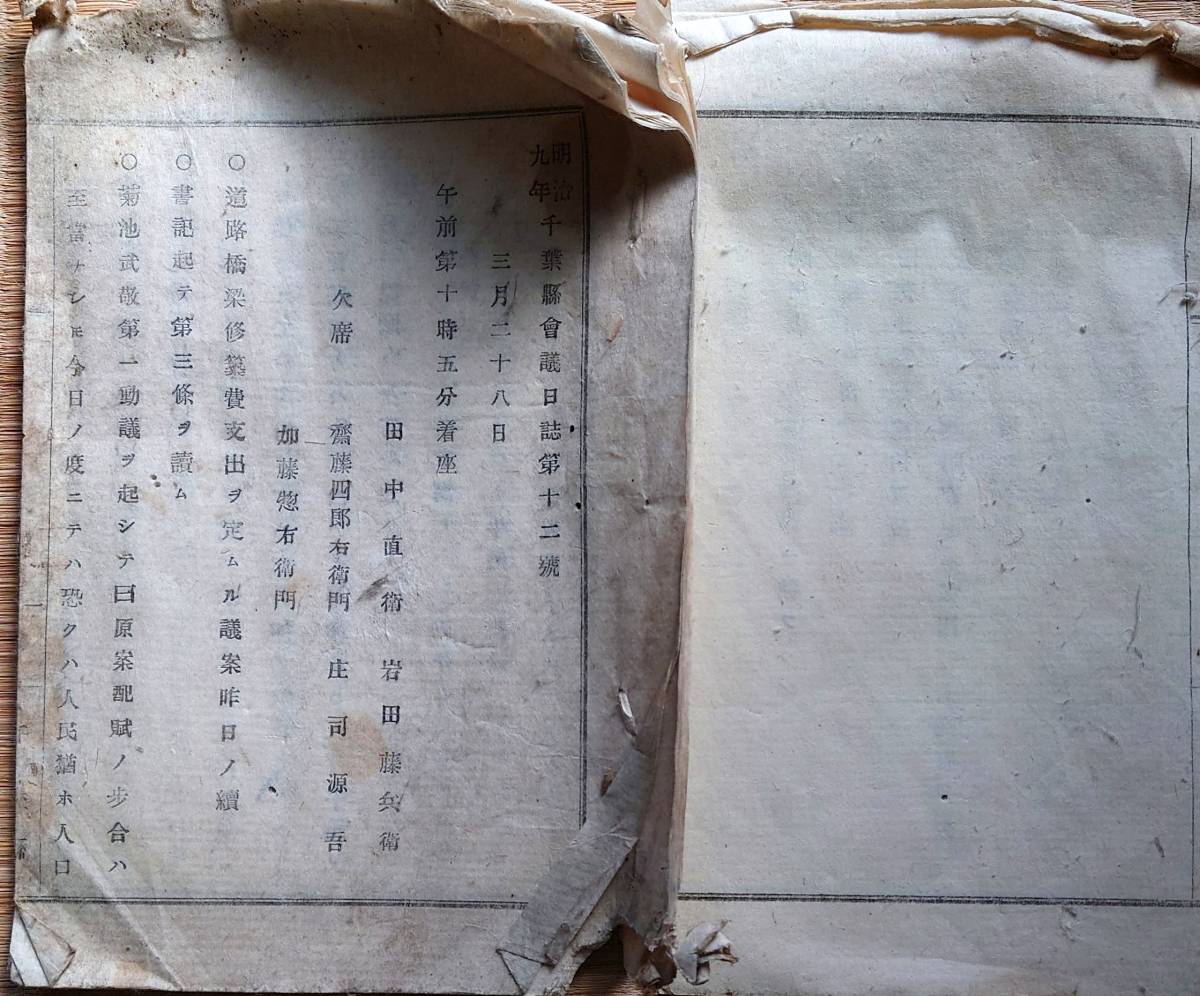 明治九年千葉縣會議日誌第十二號
三月二十八日
午前第十時五分着座
田中直衛 岩田藤兵衛
欠席 齋藤四郎右衛門 庄司源吾
加藤惣右衛門
○道路橋梁修築費支出ヲ定ムル議案昨日ノ續
○書記起テ第三條ヲ讀ム
○菊池武敬第一動議ヲ起シテ曰原案配賦ノ步合ハ
至當ナレㇳモ今日ノ度ニテハ恐クハ人民猶ホ人口